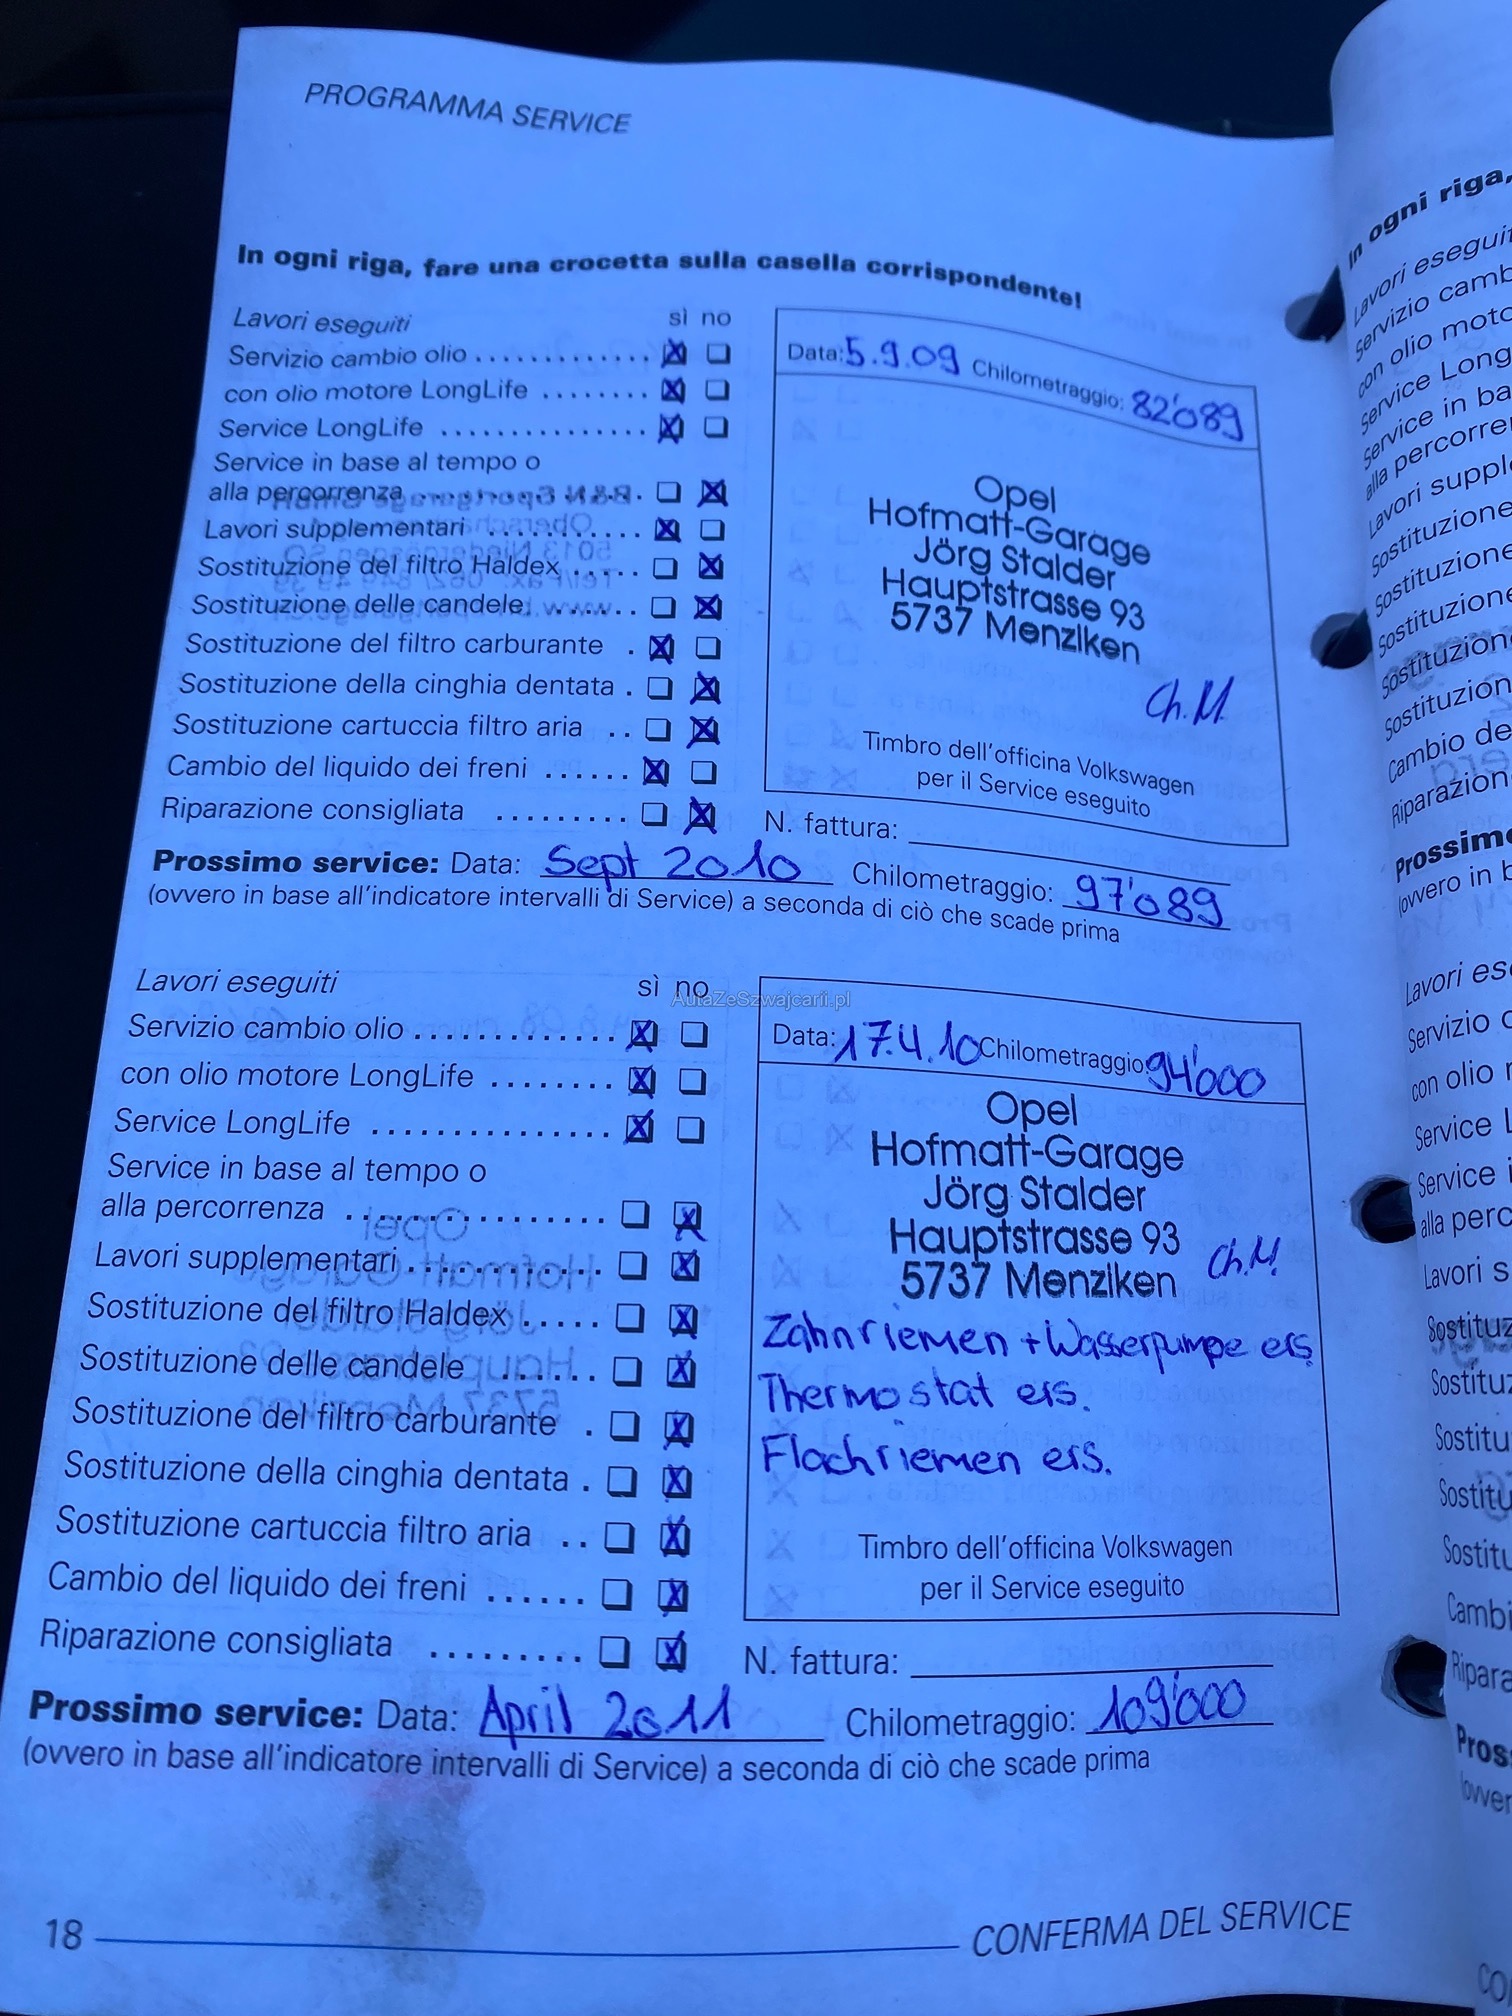 PROGRAMMA SERVICE
In ogni riga, fare una crocetta sulla casella corrispondente!
Lavori eseguiti sì no
Servizio cambio olio
con olio motore LongLife
Service LongLife
Service in base al tempo o
alla percorrenza
Lavori supplementari
Sostituzione del filtro Haldex
Sostituzione delle candele
Sostituzione del filtro carburante
Sostituzione della cinghia dentata
Sostituzione cartuccia filtro aria
Cambio del liquido dei freni
Riparazione consigliata
Data: 5.9.09 Chilometraggio: 82'089
Opel
Hofmatt-Garage
Jörg Stalder
Hauptstrasse 93
5737 Menziken
Ch.M
Timbro dell'officina Volkswagen
per il Service eseguito
N. fattura:
Prossimo service: Data: Sept 2010 Chilometraggio: 97'089
(ovvero in base all'indicatore intervalli di Service) a seconda di ciò che scade prima
Lavori eseguiti sì no
AutaZeSzwajcarii.pl
Servizio cambio olio
con olio motore LongLife
Service LongLife
Service in base al tempo o
alla percorrenza
Lavori supplementari
Sostituzione del filtro Haldex
Sostituzione delle candele
Sostituzione del filtro carburante
Sostituzione della cinghia dentata
Sostituzione cartuccia filtro aria
Cambio del liquido dei freni
Riparazione consigliata
Data: 17.4.10 Chilometraggio: 94'000
Opel
Hofmatt-Garage
Jörg Stalder
Hauptstrasse 93
5737 Menziken
Ch.M.
Zahnriemen + Wasserpumpe ers
Thermostat ers.
Flachriemen ers.
Timbro dell'officina Volkswagen
per il Service eseguito
N. fattura:
Prossimo service: Data: April 2011 Chilometraggio: 109'000
(ovvero in base all'indicatore intervalli di Service) a seconda di ciò che scade prima
18 CONFERMA DEL SERVICE
In ogni riga,